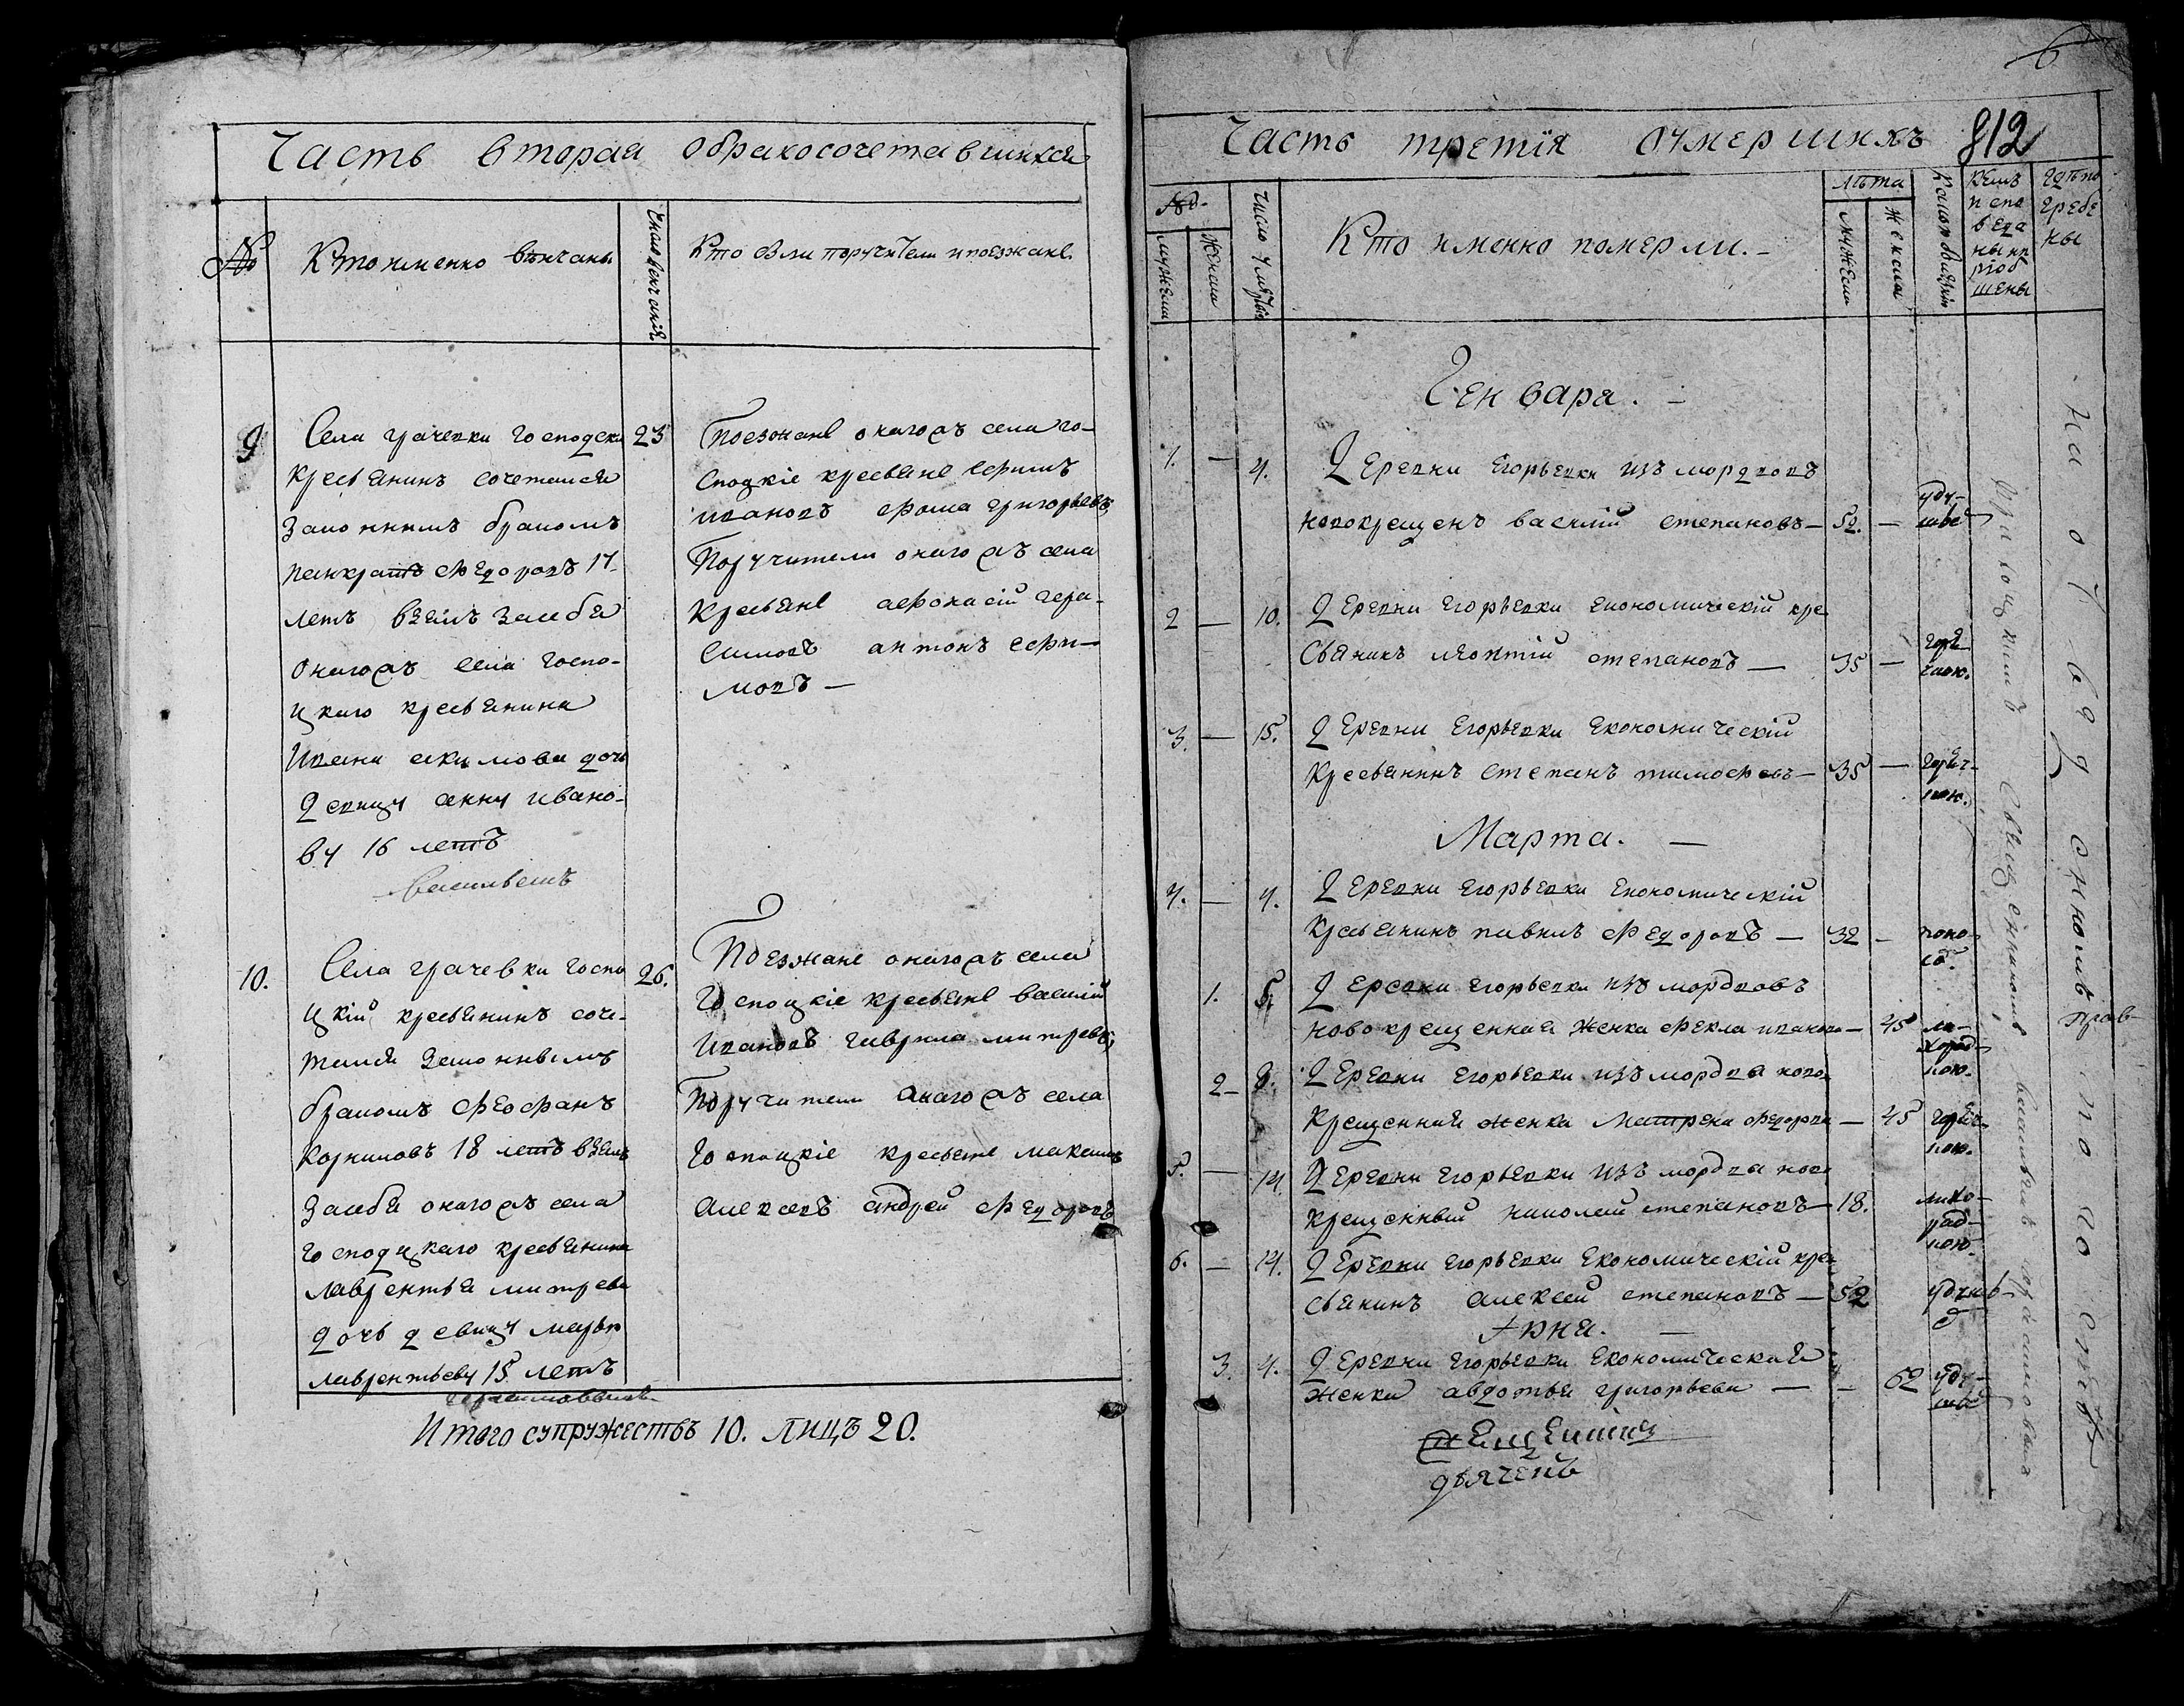 Часть вторая обракосочетавшихся
№
Кто именно венчаны
Число венчаній
Кто были поручители и поезжане.
9
Села грачевки господски
23
крестьянинъ сочетался
законнымъ бракомъ
панкратъ федоровъ 17
летъ взялъ засебя
оногожъ села госпо-
цкаго крестьянина
Ивана акимова дочь
девицу анну ивано-
ву 16 летъ
Васильевъ
Поезжане оногожъ села го-
споцкіе крестьяне ефимъ
ивановъ фома григорьевъ,
Поручители оногожъ села
крестьяне афонасій гера-
симовъ антонъ ефи-
мовъ —
10.
Села грачевки госпо
26.
цкій крестьянинъ соче-
тался законнымъ
бракомъ феофанъ
корниловъ 18 летъ взялъ
засебя оногожъ села
господцкаго крестьянина
лаврентья митрева
дочь девицу марью
лаврентьеву 15 летъ
Поезжане оногожъ села
Господцкіе крестьяне василій
Ивановъ гаврила митревъ,
Поручители оногожъ села
Господцкіе крестьяне максимъ
алексевъ андрей федоровъ
Итого супружествъ 10. лицъ 20.
6
Часть третія оумершихъ 812
№
мужеска
женска
Число умертвія
Кто именно померли. —
лѣта
мужеска
женска
Какою болѣзнію
Кемъ
испо
веда
ны и п
ріоб
щены
Где по
гребе
ны
Генваря. —
1. — 4. Деревни Егорьевки изъ мордвовъ
новокрещенъ василій степановъ — 52. — уду-
шьем
2 — 10. Деревни Егорьевки економическій кре
стьянинъ леонтій степановъ — 35 — горя-
чкою.
3. — 15. Деревни Егорьевки Економическій
крестьянинъ степанъ тимофевъ — 35 — горяч-
кою.
Марта. —
4. — 4. Деревни Егорьевки Економическій
крестьянинъ павилъ федоровъ — 32 — поно-
съ.
1. 5. Деревни егорьевки изъ мордвовъ
новокрещенная женка фекла иванова — 45 ли-
хорад-
кою.
2 — 8. Деревни Егорьевки изъ мордва ново
крещенная женка Матрена федорова — 45 горяч-
кою.
5. — 14. Деревни Егорьевки изъ мордва ново
крещенный николай степановъ — 18. лихо-
рад-
кою.
6. — 14. Деревни Егорьевки Економическій кре
стьянинъ алексей степановъ — 52
3. 4. Деревни Егорьевки Економическая
женка авдотья григорьева — — 62 уду-
шьем
дьячекъ
священникомъ васильемъ герасимовымъ